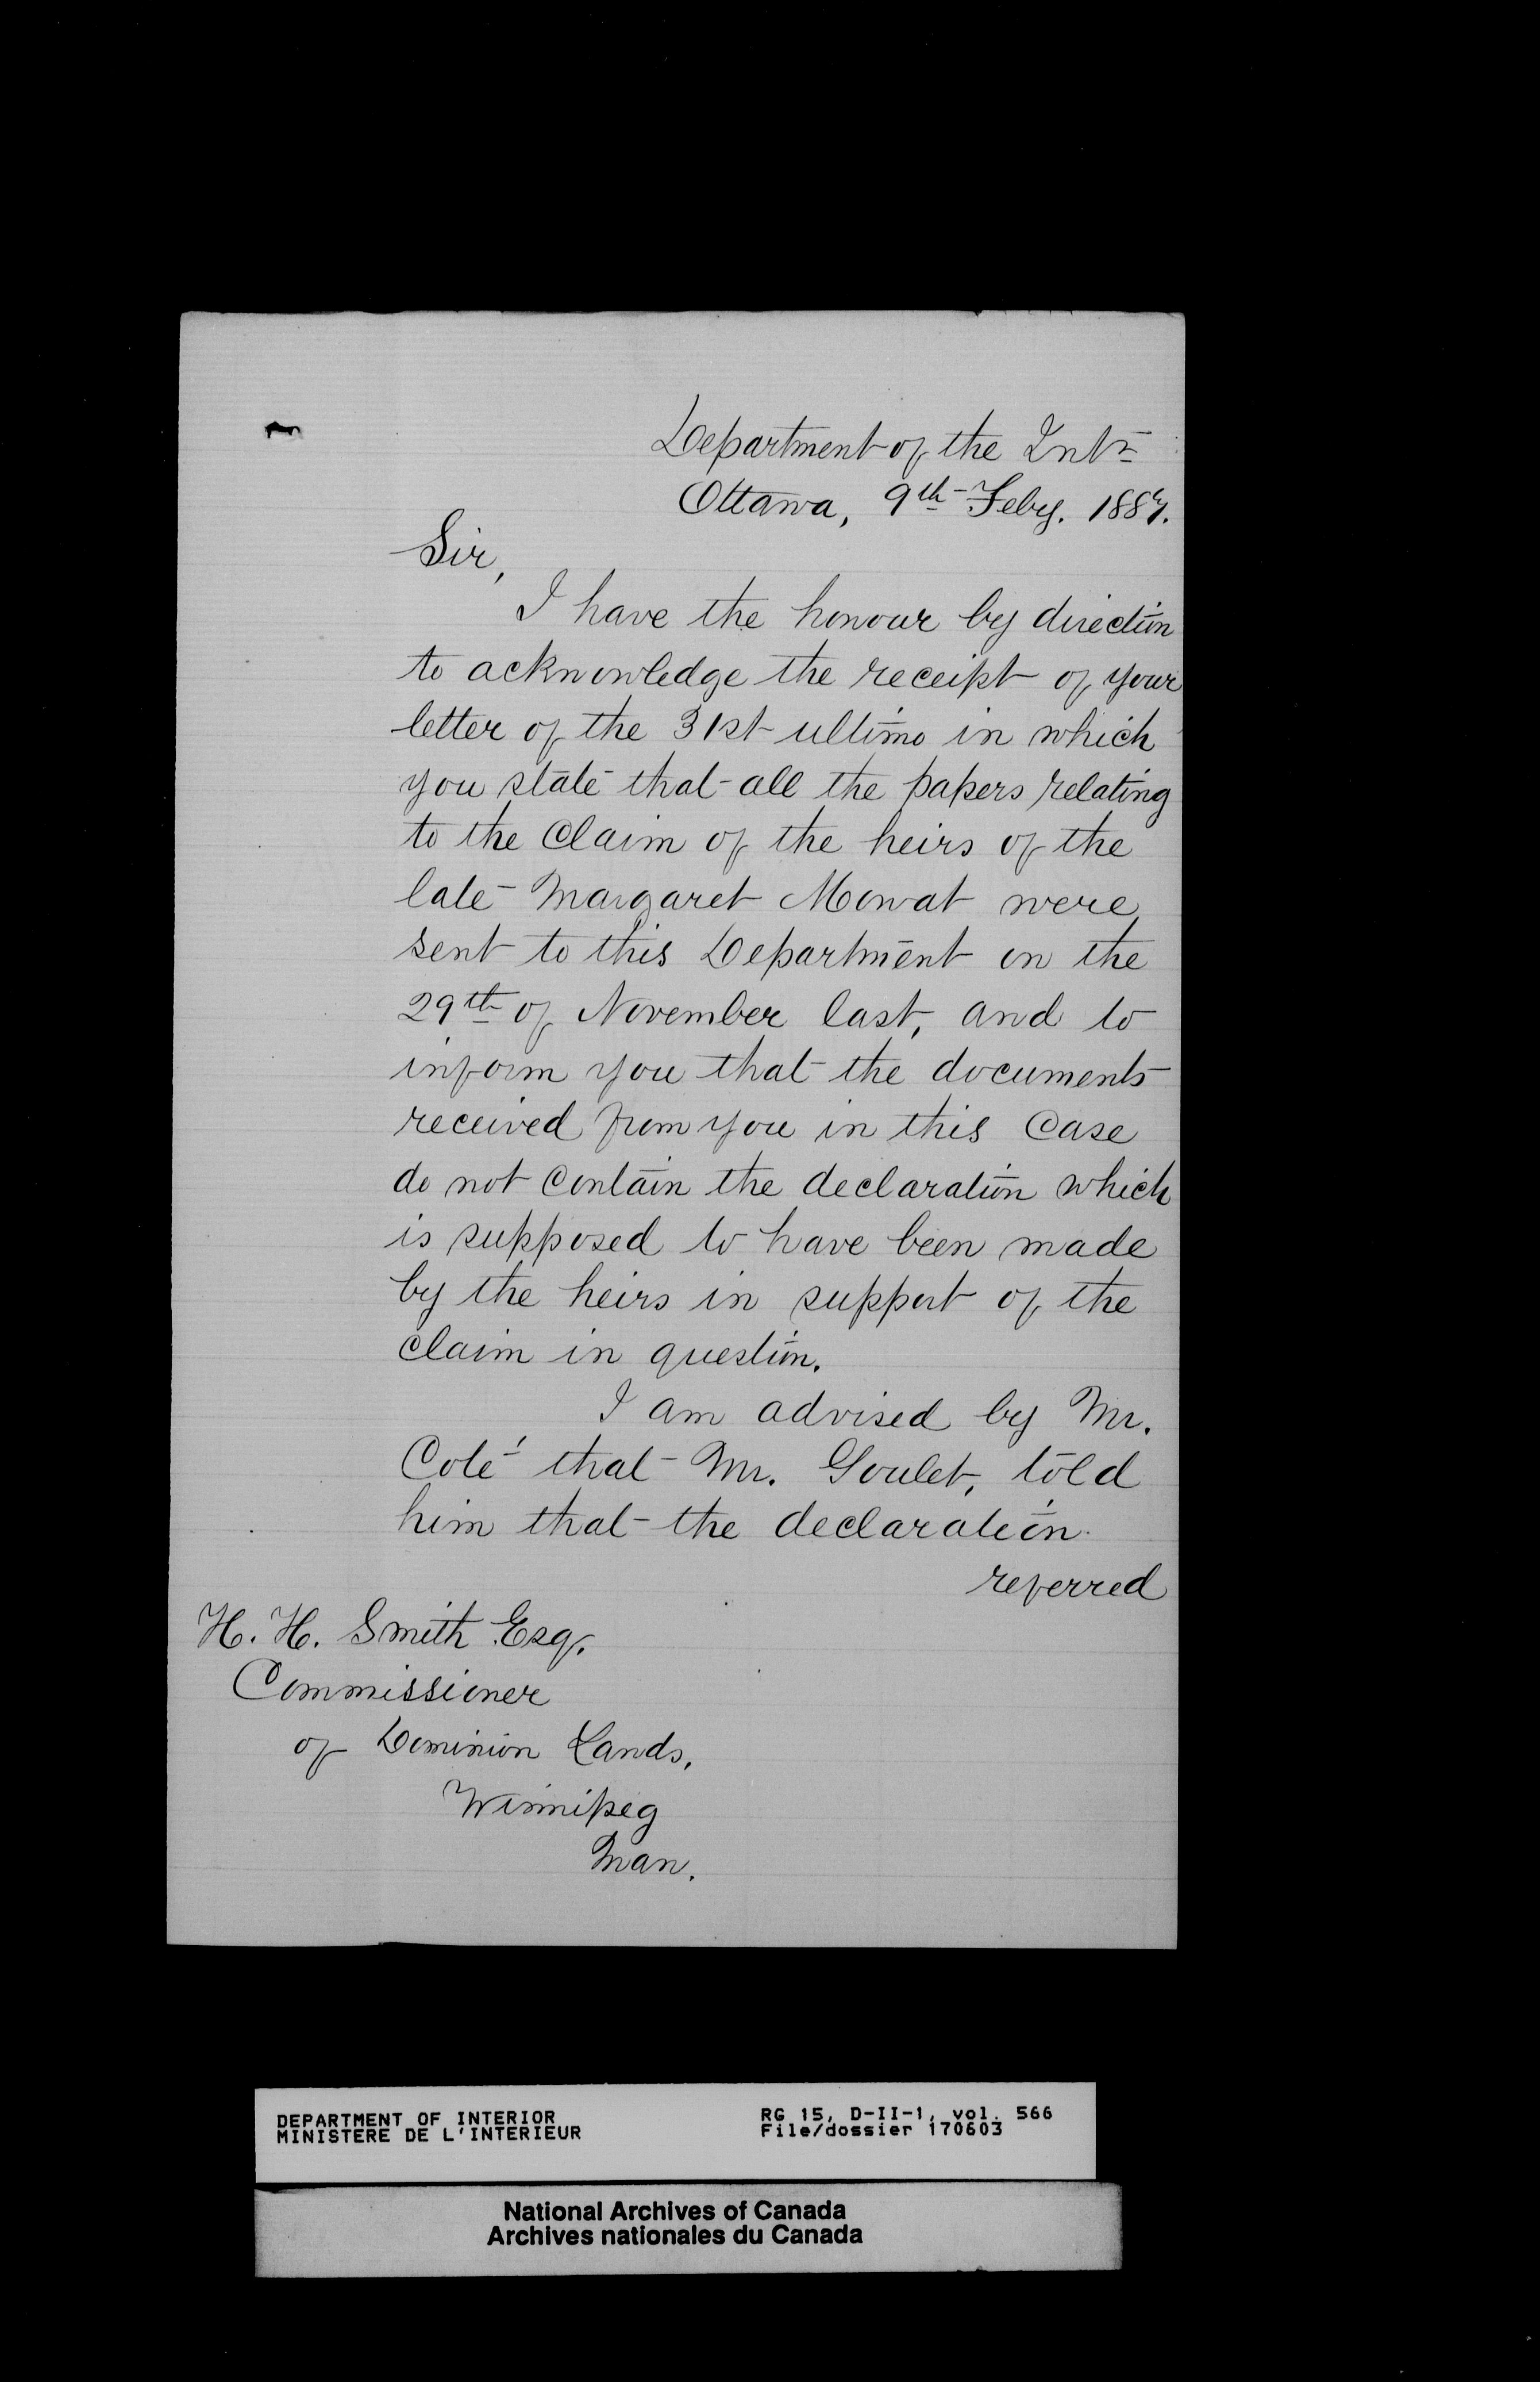 Department of the Intr
Ottawa, 9th Feby. 1887.
Sir,
I have the honour by direction
to acknowledge the receipt of your
letter of the 31st ultimo in which
you state that all the papers relating
to the Claim of the heirs of the
late Margaret Mowat were
sent to this Department on the
29th of November last, and to
inform you that the documents
received from you in this Case
do not Contain the declaration which
is supposed to have been made
by the heirs in support of the
Claim in question.
I am advised by Mr.
Coté that Mr. Goulet, told
him that the declaration
referred
H. H. Smith Esq.
Commissioner
of Dominion Lands,
Winnipeg
Man.
DEPARTMENT OF INTERIOR
MINISTERE DE L'INTERIEUR
RG 15, D-II-1, vol. 566
File/dossier 170603
National Archives of Canada
Archives nationales du Canada